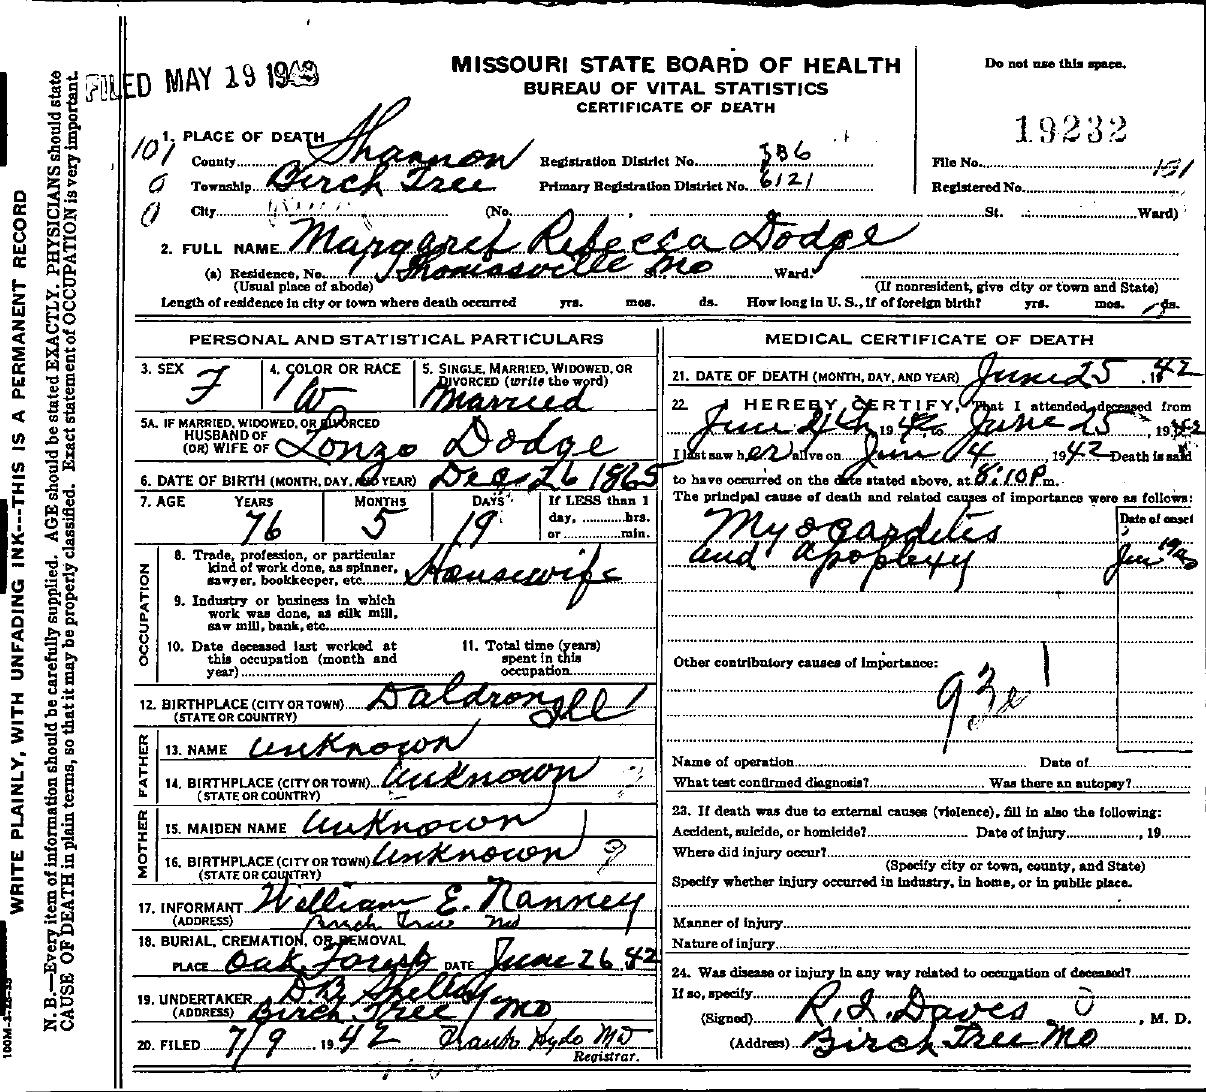 FILED MAY 19 19
MISSOURI STATE BOARD OF HEALTH
BUREAU OF VITAL STATISTICS
CERTIFICATE OF DEATH
Do not use this space.
19232
1. PLACE OF DEATH
County Shannon Registration District No. 386 File No. 151
Township Birch Tree Primary Registration District No. 6121 Registered No.
City (No. St. Ward)
2. FULL NAME Margaret Rebecca Dodge
(a) Residence, No. Thomasville Mo Ward.
(Usual place of abode) (If nonresident, give city or town and State)
Length of residence in city or town where death occurred yrs. mos. ds. How long in U. S., if of foreign birth? yrs. mos. ds.
PERSONAL AND STATISTICAL PARTICULARS
3. SEX F
4. COLOR OR RACE W
5. SINGLE, MARRIED, WIDOWED, OR DIVORCED (write the word) Married
5A. IF MARRIED, WIDOWED, OR DIVORCED
HUSBAND OF
(OR) WIFE OF Lonzo Dodge
6. DATE OF BIRTH (MONTH, DAY, AND YEAR) Dec 26 1865
7. AGE YEARS MONTHS DAYS If LESS than 1
76 5 19 day, hrs.
or min.
OCCUPATION
8. Trade, profession, or particular
kind of work done, as spinner,
sawyer, bookkeeper, etc. Housewife
9. Industry or business in which
work was done, as silk mill,
saw mill, bank, etc.
10. Date deceased last worked at
this occupation (month and
year)
11. Total time (years)
spent in this
occupation
12. BIRTHPLACE (CITY OR TOWN) Daldron
(STATE OR COUNTRY) Ill
FATHER
13. NAME unknown
14. BIRTHPLACE (CITY OR TOWN) unknown
(STATE OR COUNTRY)
MOTHER
15. MAIDEN NAME unknown
16. BIRTHPLACE (CITY OR TOWN) unknown
(STATE OR COUNTRY)
17. INFORMANT William E. Nanney
(ADDRESS) Birch Tree Mo
18. BURIAL, CREMATION, OR REMOVAL
PLACE Oak Forest DATE June 26 42
19. UNDERTAKER D.B. Shelley
(ADDRESS) Birch Tree Mo
20. FILED 7/9, 1942 Frank Hyde MD
Registrar.
MEDICAL CERTIFICATE OF DEATH
21. DATE OF DEATH (MONTH, DAY, AND YEAR) June 25, 1942
22. I HEREBY CERTIFY, That I attended deceased from
June 24th, 1942, to June 25, 1942
I last saw her alive on June 4, 1942 Death is said
to have occurred on the date stated above, at 8:10P m.
The principal cause of death and related causes of importance were as follows:
Date of onset
Myocarditis
and Apoplexy Jun
Other contributory causes of importance:
93
Name of operation Date of
What test confirmed diagnosis? Was there an autopsy?
23. If death was due to external causes (violence), fill in also the following:
Accident, suicide, or homicide? Date of injury , 19
Where did injury occur?
(Specify city or town, county, and State)
Specify whether injury occurred in industry, in home, or in public place.
Manner of injury
Nature of injury
24. Was disease or injury in any way related to occupation of deceased?
If so, specify
(Signed) R. I. Davis, M. D.
(Address) Birch Tree Mo
WRITE PLAINLY, WITH UNFADING INK---THIS IS A PERMANENT RECORD
N. B.—Every item of information should be carefully supplied. AGE should be stated EXACTLY. PHYSICIANS should state
CAUSE OF DEATH in plain terms, so that it may be properly classified. Exact statement of OCCUPATION is very important.